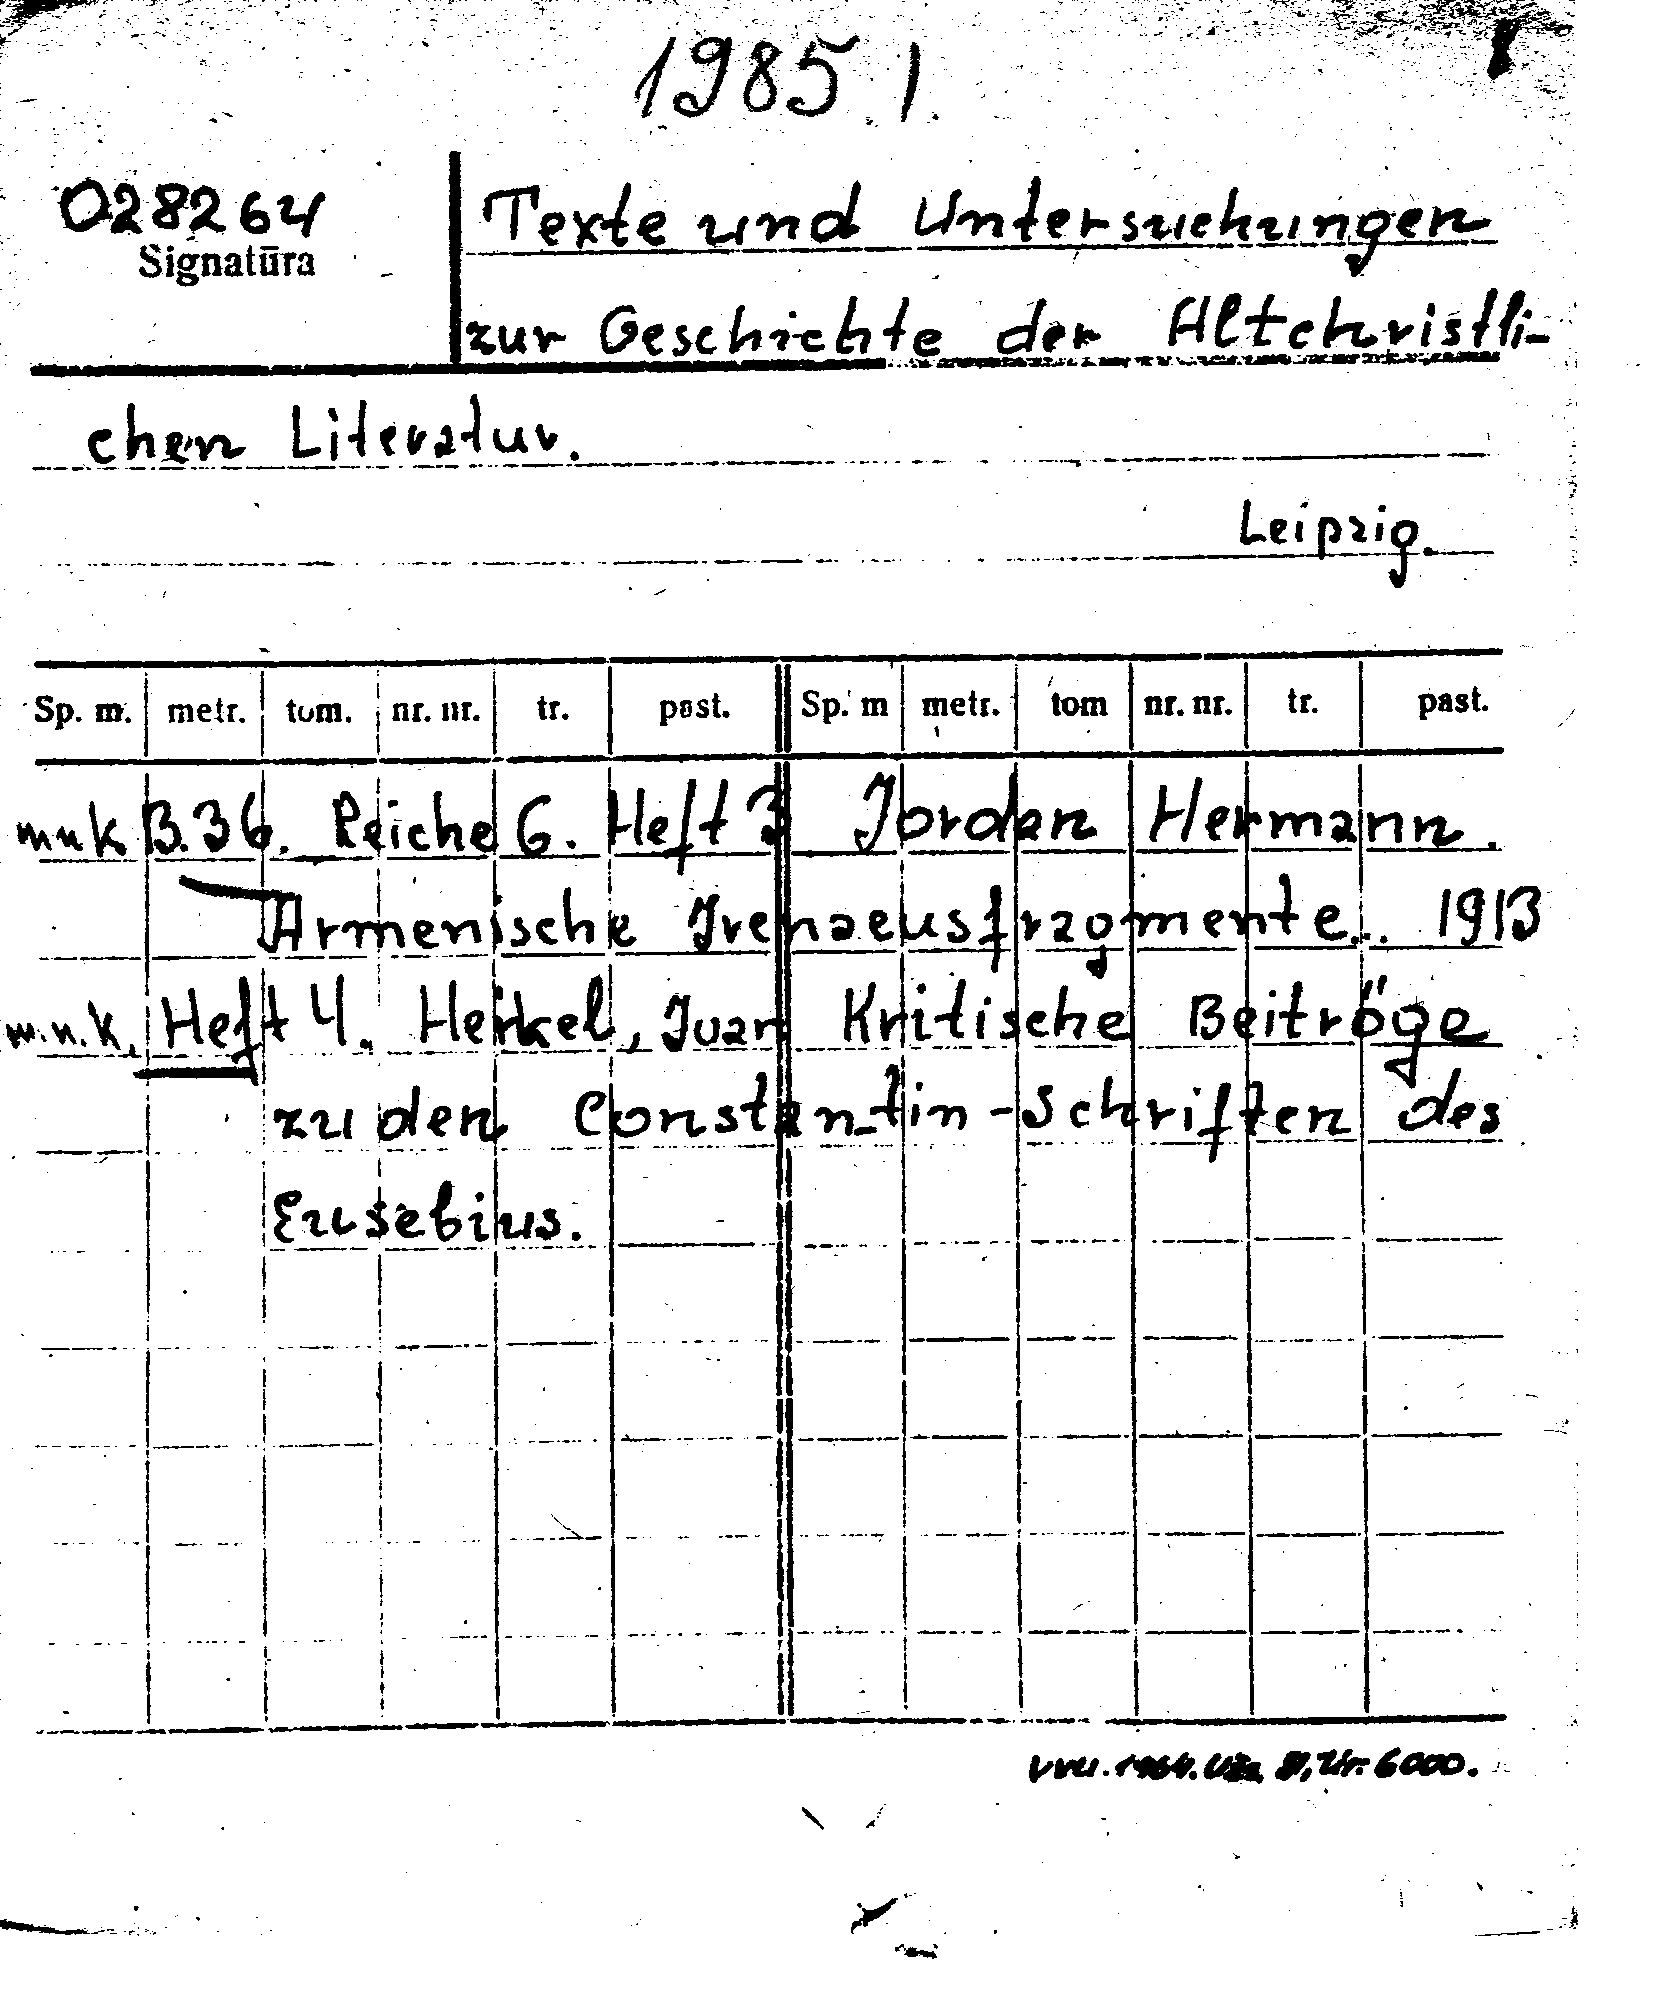 1985 1
028264
Signatūra
Texte und Untersuchungen
zur Geschichte der Altchristli-
chen Literatur.
Leipzig.
Sp. m. metr. tom. nr. nr. tr. past. Sp. m metr. tom nr. nr. tr. past.
m n k B.36. Reiche 6. Heft 3 Jordan Hermann.
Armenische Irenaeusfragmente... 1913
m.n.k. Heft 4. Heikel, Ivan Kritische Beiträge
zu den Constantin-Schriften des
Eusebius.
VVU. 1964. Užs. Nr. 6000.